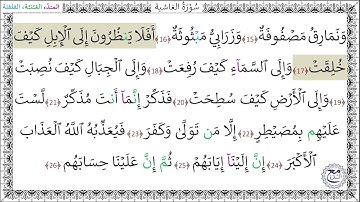 سُورَةُ الغَاشِيَةِ المَدّ، الغُنَّة، القَلقَلة
وَنَمَارِقُ مَصْفُوفَةٌ ﴿15﴾ وَزَرَابِيُّ مَبْثُوثَةٌ ﴿16﴾ أَفَلَا يَنظُرُونَ إِلَى الْإِبِلِ كَيْفَ
خُلِقَتْ ﴿17﴾ وَإِلَى السَّمَآءِ كَيْفَ رُفِعَتْ ﴿18﴾ وَإِلَى الْجِبَالِ كَيْفَ نُصِبَتْ
﴿19﴾ وَإِلَى الْأَرْضِ كَيْفَ سُطِحَتْ ﴿20﴾ فَذَكِّرْ إِنَّمَآ أَنتَ مُذَكِّرٌ ﴿21﴾ لَّسْتَ
عَلَيْهِم بِمُصَيْطِرٍ ﴿22﴾ إِلَّا مَن تَوَلَّىٰ وَكَفَرَ ﴿23﴾ فَيُعَذِّبُهُ اللَّهُ الْعَذَابَ
الْأَكْبَرَ ﴿24﴾ إِنَّ إِلَيْنَآ إِيَابَهُمْ ﴿25﴾ ثُمَّ إِنَّ عَلَيْنَا حِسَابَهُم ﴿26﴾